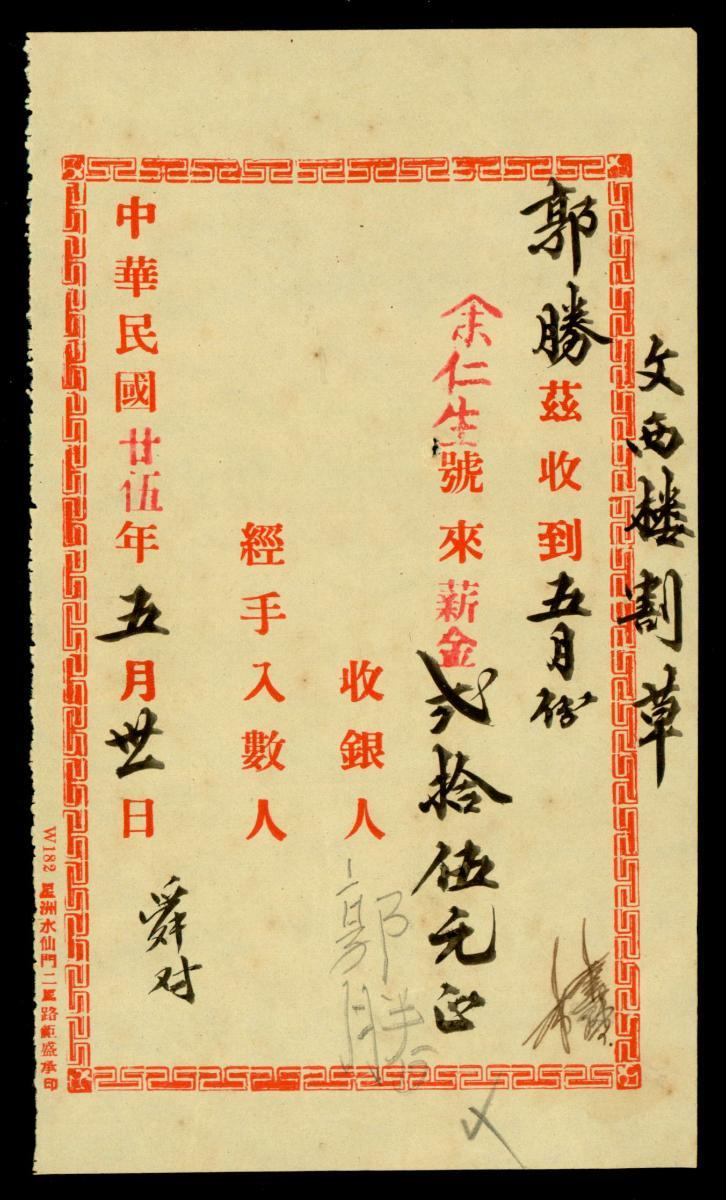 文西楼割草
郭勝茲收到五月份
余仁生號來薪金弍拾伍元正
收銀人郭勝
經手入數人
中華民國廿伍年五月卅一日
舜对
W182 星洲水仙門二馬路鉅盛承印